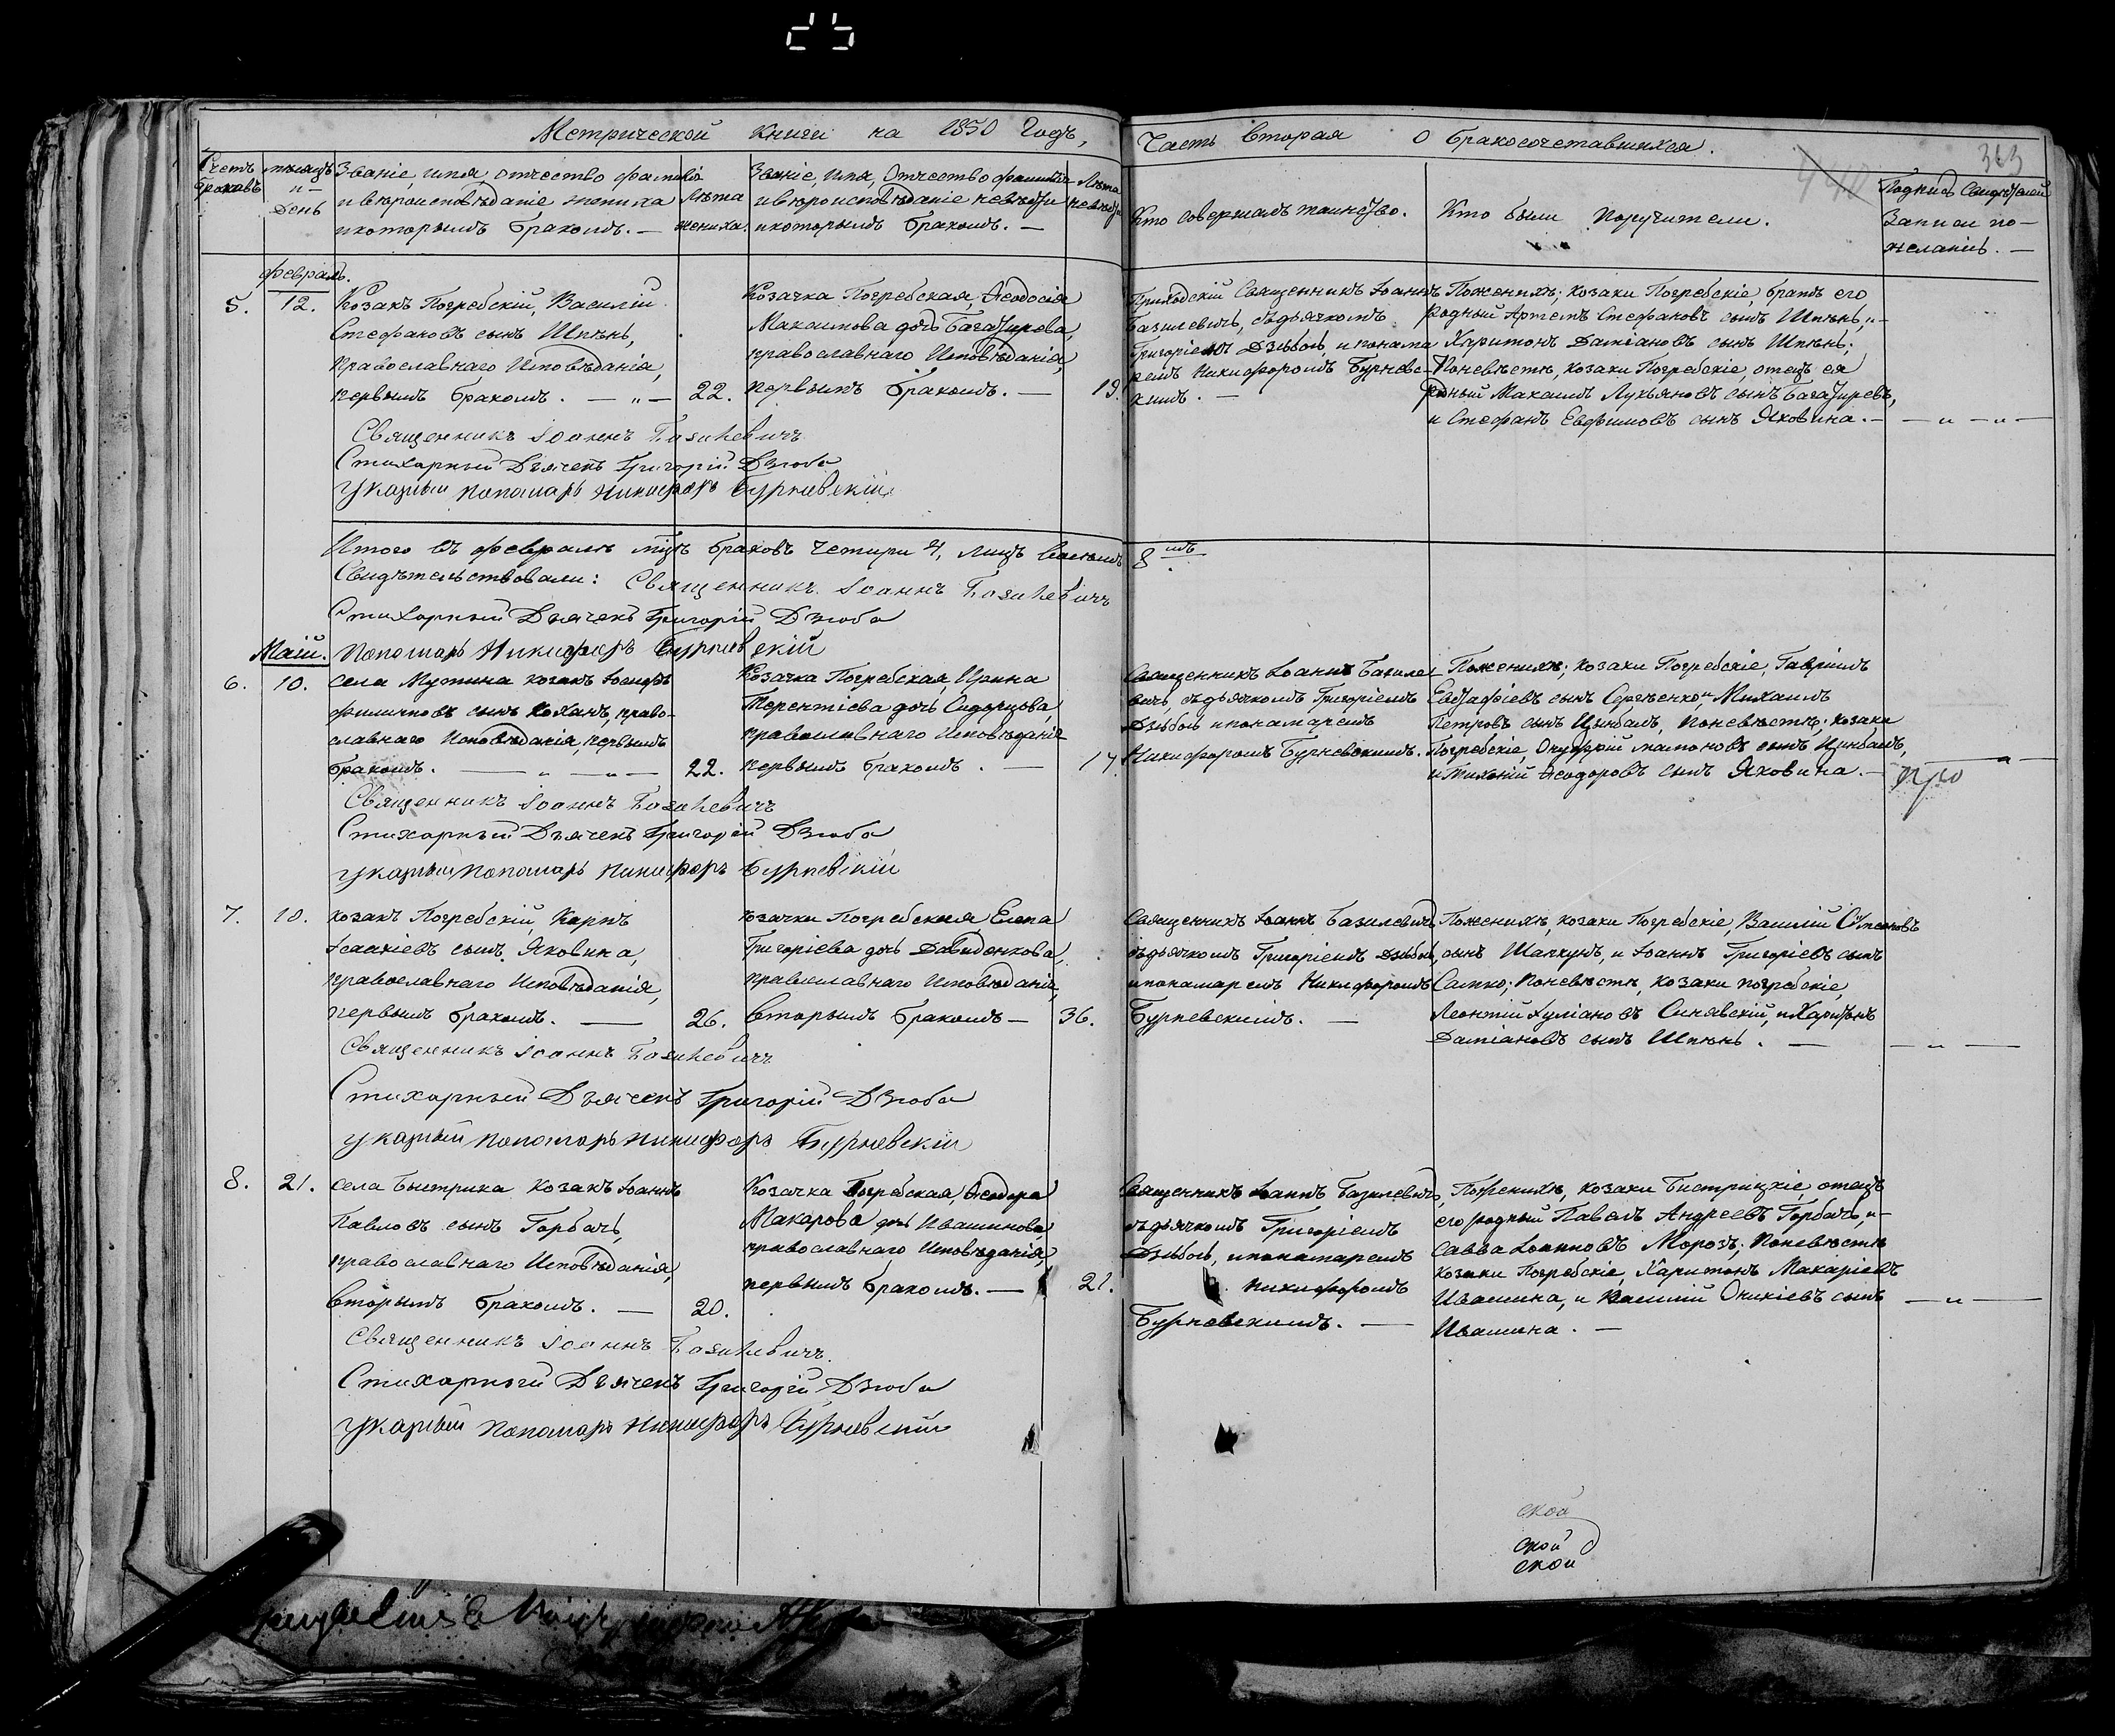 Метрической книги на 1850 Годъ,
Часть вторая о бракосочетавшихся.
363
440
Счетъ браковъ
мѣсяцъ и день
Званіе, имя, отчество фамилія
и вѣроисповѣданіе жениха
и которымъ бракомъ. —
Лѣта
жениха.
Званіе, имя, Отчество фамилія
и вѣроисповѣданіе невѣсты
и которымъ бракомъ. —
Лѣта
невѣсты
Кто совершалъ таинство.
Кто были поручители.
Подпись Свидѣтелей
Записи по-
желанію. —
февраль.
5.
12.
Козакъ Погребскій, Василій
Стефановъ сынъ Шпѣнь,
православнаго Исповѣданія,
первымъ бракомъ. — „ —
22.
Козачка Погребская, Ѳеодосія
Максимова дочь Багатирева,
православнаго Исповѣданія,
первымъ бракомъ. —
19.
Приходскій Священникъ Іоаннъ
Базилевичъ, съ дьячкомъ
Григоріемъ Дзюбою, и понама
ремъ Никифоромъ Бурневс-
кимъ. —
Поженихѣ; козаки Погребскіе, братъ его
родный Артемъ Стефановъ сынъ Шпѣнь, и-
Харитонъ Даміановъ сынъ Шпѣнь;
Поневѣстѣ, козаки Погребскіе, отецъ ея
родный Максимъ Лукьяновъ сынъ Багатиревъ,
и Стефанъ Евфимовъ сынъ Яковина. —
— „ — „ —
Священникъ Іоаннъ Базилевичъ
Стихарный Дьячекъ Григорій Дзюба
указный пономарь Никифоръ Бурневскій
Итого въ февралѣ мцѣ браковъ четыри 4, лицъ восемь
8 мь
Свидѣтельствовали: Священникъ Іоаннъ Базилевичъ
Стихарный Дьячекъ Григорій Дзюба
Пономарь Никифоръ Бурневскій
Маій.
6.
10.
села Мутина козакъ Іосифъ
Филиповъ сынъ Коханъ, право-
славнаго Исповѣданія, первымъ
бракомъ. — „ — „ —
22.
Козачка Погребская, Ирина
Терентіева дочь Сидорцова,
православнаго Исповѣданія
первымъ бракомъ. —
17.
Священникъ Іоаннъ Базиле
вичъ, съ дьячкомъ Григоріемъ
Дзюбою и понамаремъ
Никифоромъ Бурневскимъ.
Поженихѣ; козаки Погребскіе, Гавріилъ
Евстафіевъ сынъ Сергѣенко, и Михаилъ
Петровъ сынъ Цинбалъ, поневѣстѣ; козаки
Погребскіе, Онуфрій сынъ Цинбалъ,
и Тихоній Ѳеодоровъ сынъ Яковина. —
Священникъ Іоаннъ Базилевичъ
Стихарный Дьячекъ Григорій Дзюба
указный пономарь Никифоръ Бурневскій
7.
10.
козакъ Погребскій, Карпъ
Исаакіевъ сынъ Яковина,
православнаго Исповѣданія,
первымъ бракомъ. —
26.
козачки Погребская Елена
Григоріева дочь Давиденкова,
православнаго Исповѣданія,
вторымъ бракомъ —
36.
Священникъ Іоаннъ Базилевичъ,
съ дьячкомъ Григоріемъ Дзюбою,
и понамаремъ Никифоромъ
Бурневскимъ. —
Поженихѣ, козаки Погребскіе, Василій
сынъ Шапкунъ, и Іоаннъ Григоріевъ сынъ
поневѣстѣ, козаки погребскіе,
Леонтій Синявскій, и Харитонъ
Даміановъ сынъ Шпѣнь. —
— „ —
Священникъ Іоаннъ Базилевичъ
Стихарный Дьячекъ Григорій Дзюба
указный пономарь Никифоръ Бурневскій
8.
21.
села Быстрика козакъ Іоаннъ
Павловъ сынъ Горбачъ,
православнаго Исповѣданія,
вторымъ бракомъ. —
20.
Козачка Погребская, Ѳеодора
Макарова дочь Ивашинова,
православнаго Исповѣданія,
первымъ бракомъ. —
21.
Священникъ Іоаннъ Базилевичъ,
съ дьячкомъ Григоріемъ
Дзюбою, и понамаремъ
Никифоромъ
Бурневскимъ. —
Поженихѣ, козаки Бистрицкіе, отецъ
его родный Павелъ Андреевъ Горбачъ, и-
Савва Іоанновъ Морозъ; поневѣстѣ
козаки Погребскіе, Харитонъ Макаріевъ
Ивашина, и Василій Оникіевъ сынъ
Ивашина. —
— „ —
Священникъ Іоаннъ Базилевичъ
Стихарный Дьячекъ Григорій Дзюба
указный пономарь Никифоръ Бурневскій
ской
ской
ской